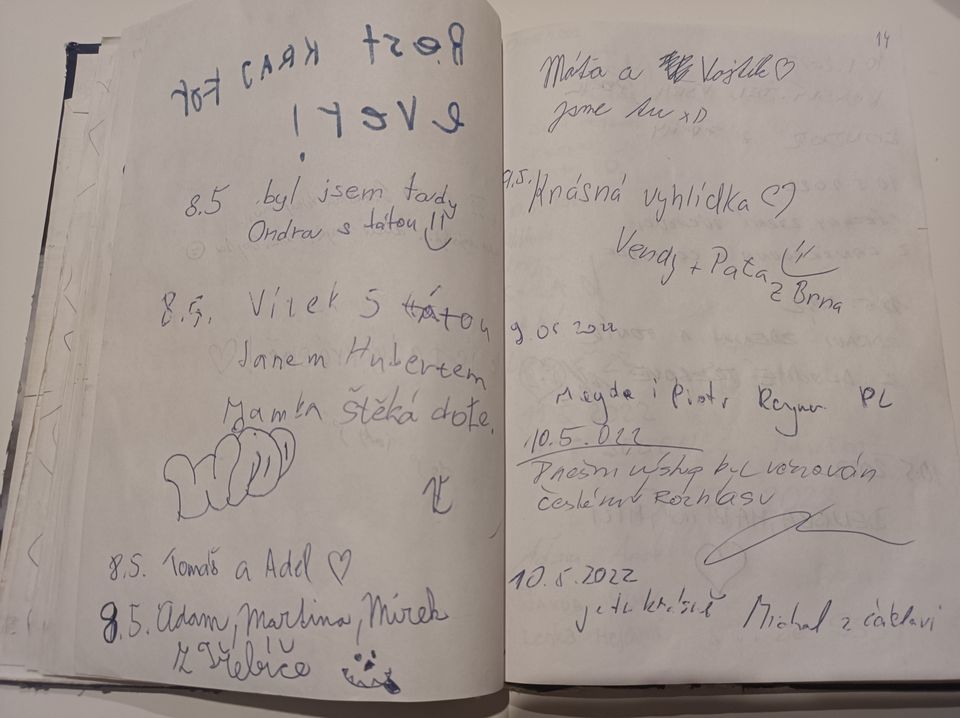 Best KRAJ FOT
eVer!
8.5 byl jsem tady
Ondra s tátou
8.5. Vírek S tátou
Janem Hubertem
Jamka štěká dote.
WOOD
8.5. Tomáš a Adel ♡
8.5. Adam, Martina, Mirek
Z Třebíče
14
Máťa a Vojtěk ♡
jsme tu xD
9.5. Krásná vyhlídka ♡
Vendy + Paťa
z Brna
9.05 2022
Magda i Piotr PL
10.5.022
Dnešní výstup byl věnován
českému Rozhlasu
10.5.2022
je tu krásně Michal z čáslavi